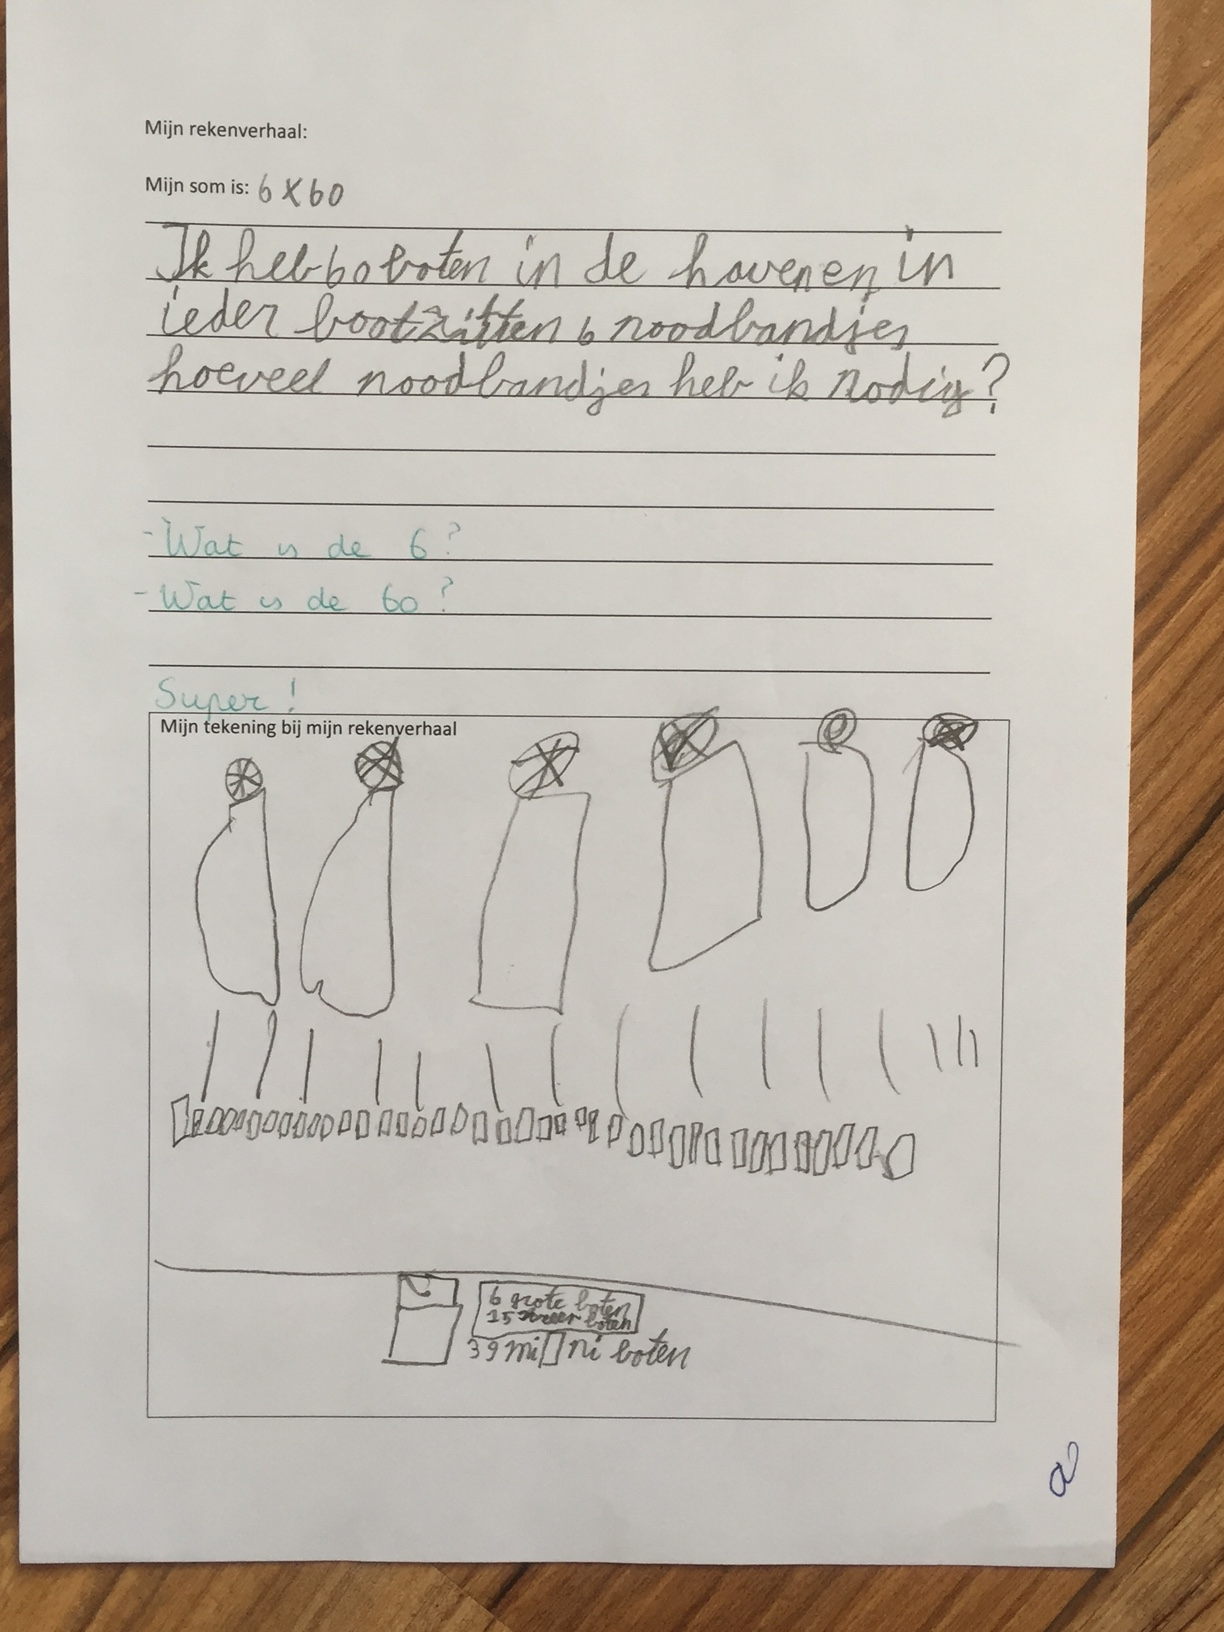 Mijn rekenverhaal:
Mijn som is: 6 x 60
Ik heb 60 boten in de haven en in
ieder boot zitten 6 noodbandjes
hoeveel noodbandjes heb ik nodig?
- Wat is de 6?
- Wat is de 60?
Super!
Mijn tekening bij mijn rekenverhaal
6 grote boten
15 boten
39 mini boten